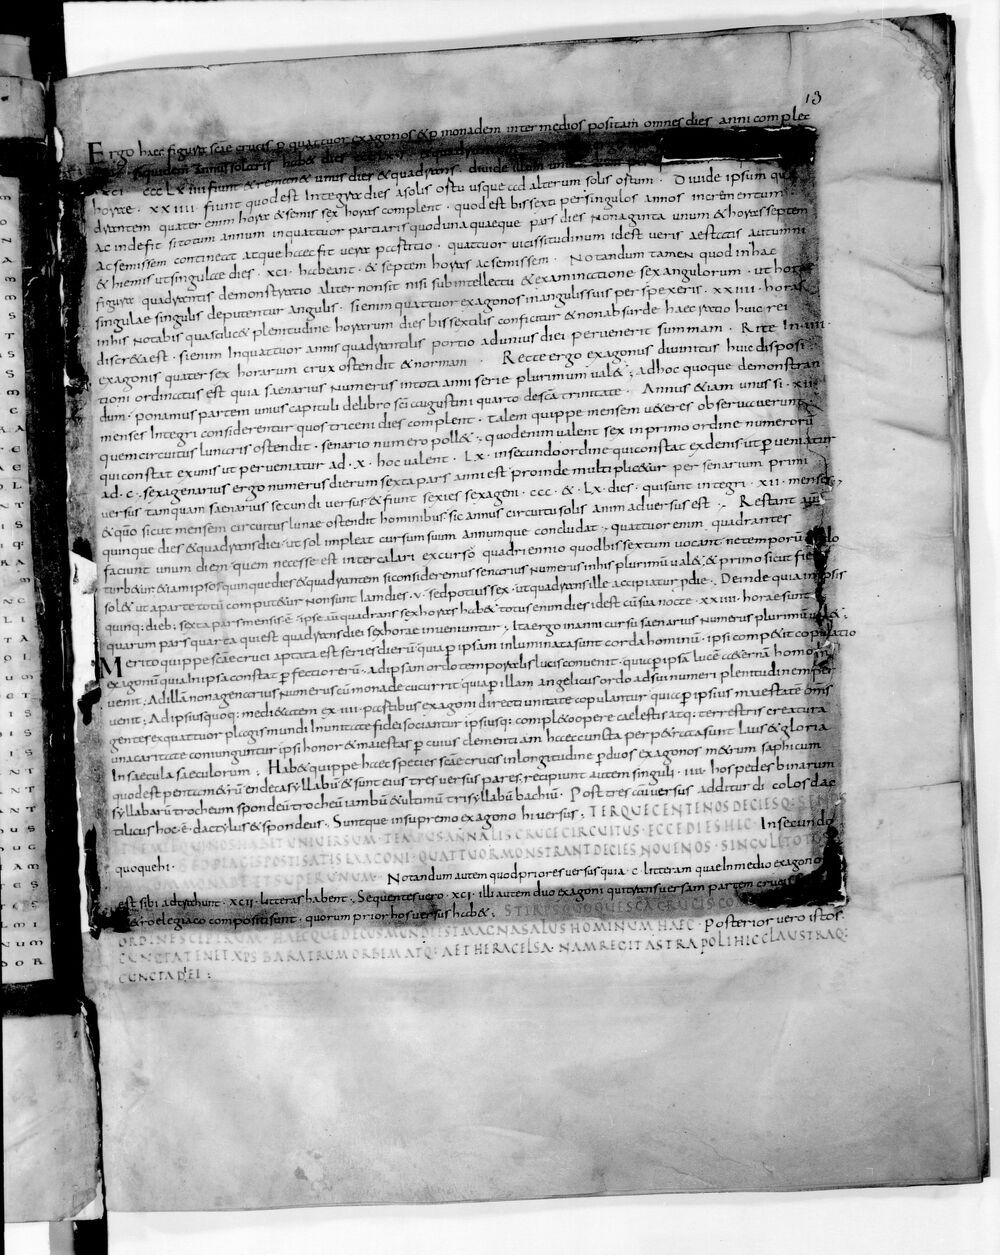 13
Ergo haec figura scae crucis p quattuor exagonos & p monadem inter medios positam omnes dies anni complec
quidem annus solaris hab& dies
XCI CCC LX IIII fiunt & reman& unus dies & quadrans. diuide
horae. XXIIII fiunt quod est Integrae dies a solis ortu usque ad alterum solis ortum. Diuide ipsum qua
drantem quater enim horae & semis sex horas complent. quod est bissexti per singulos annos incrementum
ac inde fit si totum annum in quattuor partiaris quod una quaeque pars dies Nonaginta unum & horas septem
ac semissem contineat atque haec fit uerae partitio. quattuor uicissitudinum idest ueris aestatis autumni
& hiemis ut singulae dies. XCI. habeant. & septem horas ac semissem. Notandum tamen quod in hac
figura quadrantis demonstratio aliter non sit nisi sub intellectu & examinatione sex angulorum. ut horae
singulae singulis deputentur angulis. Si enim quattuor exagonos in angulis suis perspexeris. XXIIII. horas
in his Notabis quas dies bissextilis conficitur & non absurde haec ratio huic rei
discr&a est. si enim In quattuor annis quadrantilis portio ad unius diei peruenerit summam. Rite In IIII
exagonis quater sex horarum crux ostendit & normam. Recte ergo exagonus diuinitus huic disposi
tioni ordinatus est quia saenarius Numerus in tota anni serie plurimum ual&; ad hoc quoque demonstran
dum. ponamus partem unius capituli de libro sci augustini quarto de sca trinitate. Annus &iam unus si. XII
menses Integri considerentur quos triceni dies complent. talem quippe mensem u&eres obseruauerunt
quem circuitus lunaris ostendit. senario numero poll&. quod enim ualent sex in primo ordine numerorū
qui constat ex unis ut perueniatur ad. X. hoc ualent. LX. in secundo ordine qui constat ex denis ut p ueniatur
ad. C. sexagenarius ergo numerus dierum sexta pars anni est proinde multiplic&ur per senarium primi
uersus tamquam saenarius secundi uersus & fiunt sexies sexageni. CCC. & LX. dies. qui sunt integri. XII. menses;
& qm̄ sicut mensem circuitus lunae ostendit hominibus. sic annus circuitu solis animaduersus est. Restant
quinque dies & quadrans diei ut sol impleat cursum suum annumque concludat. quattuor enim quadrantes
faciunt unum diem quem necesse est intercalari excurso quadriennio quod bissextum uocant ne temporū
turb&ur & iam ipsos quinque dies & quadrantem si consideremus senarius Numerus in his plurimū ual&. & primo sicut fieri
sol& ut a parte totū comput&ur Non sunt iam dies. V. sed potius sex. ut quadrans ille accipiatur p die. Deinde quia in ipsis
quinq: dieb; sexta pars mensis ē. ipse aūt quadrans sex horas hab& totus enim dies idest cū sua nocte. XXIIII. horae sunt
quarum pars quarta qui est quadrans diei sex horae inueniuntur. Ita ergo in anni cursū saenarius Numerus plurimū ual&;
Merito quippe scae cruci aptata est series dierū quia p ipsam inluminata sunt corda hominū. ipsi comp&it copulatio
exagonū quia In ipsa constat perfectio rerū. ad ipsam ordo temporalis lucis conuenit. quia p ipsā lucē aternā homo in
uenit. Ad illā nonagenarius Numerus cū monade cucurrit quia p illam angelicus ordo ad sui numeri plenitudinem per
uenit. Ad ipsius quoq; medi&atem ex IIII. partibus exagoni directi unitate copulantur quia p ipsius maiestatē om̄s
gentes ex quattuor plagis mundi In unitate fidei sociantur ipsiusq: compl& opere caelestis atq: terrestris creatura
una caritate coniunguntur ipsi honor & maiestas p cuius clementiam haec cuncta per p& rata sunt laus & gloria
In saecula saeculorum; Hab& quippe haec species scae crucis in longitudine p duos exagonos m&rum saphicum
quod est pentam&rū endecasyllabū & sunt eius tres uersus pares. recipiunt autem singuli. IIII. hospedes binarum
syllabarū trocheum spondeū trocheū iambū & ultimū trisyllabū bachiū. Post tres aū uersus additur di colos dac
tilicus hoc. ē. dactylus & spondeus. Suntque in supremo exagono hi uersus; TER QUE CENTENOS DECIES Q: SENOS
ET NEMPE QUINOS HABET UNIVERSUM. TEMPUS ANNALIS CRUCE CIRCUITUS. ECCE DIES HIC. In secundo
SED PLAGIS POSITIS ATIS EXAGONI. QUATTUOR MONSTRANT DECIES NOVENOS. SINGULI TOTO
quoque hi.
MONADE ET SUPER UNUM. Notandum autem quod priores uersus quia. C. litteram quae In medio exagono
est sibi adtrahunt. XCII. litteras habent. Sequentes uero. XCI. illi autem duo exagoni qui transuersam partem crucis
& ro elegiaco compositi sunt. quorum prior hos uersus hab&; STIRPS QUOQUE SCA CRUCIS CO
ORDINE SCEPTRUM. HAEC QUE DECUS MUNDI EST MAGNA SALUS HOMINUM HAEC. Posterior uero istos.
CUNCTA TENET XPS BARATRUM ORBEM ATQ: AETHERA CELSA. NAM REGIT ASTRA POLI HIC CLAUSTRAQ:
CUNCTA DEI;